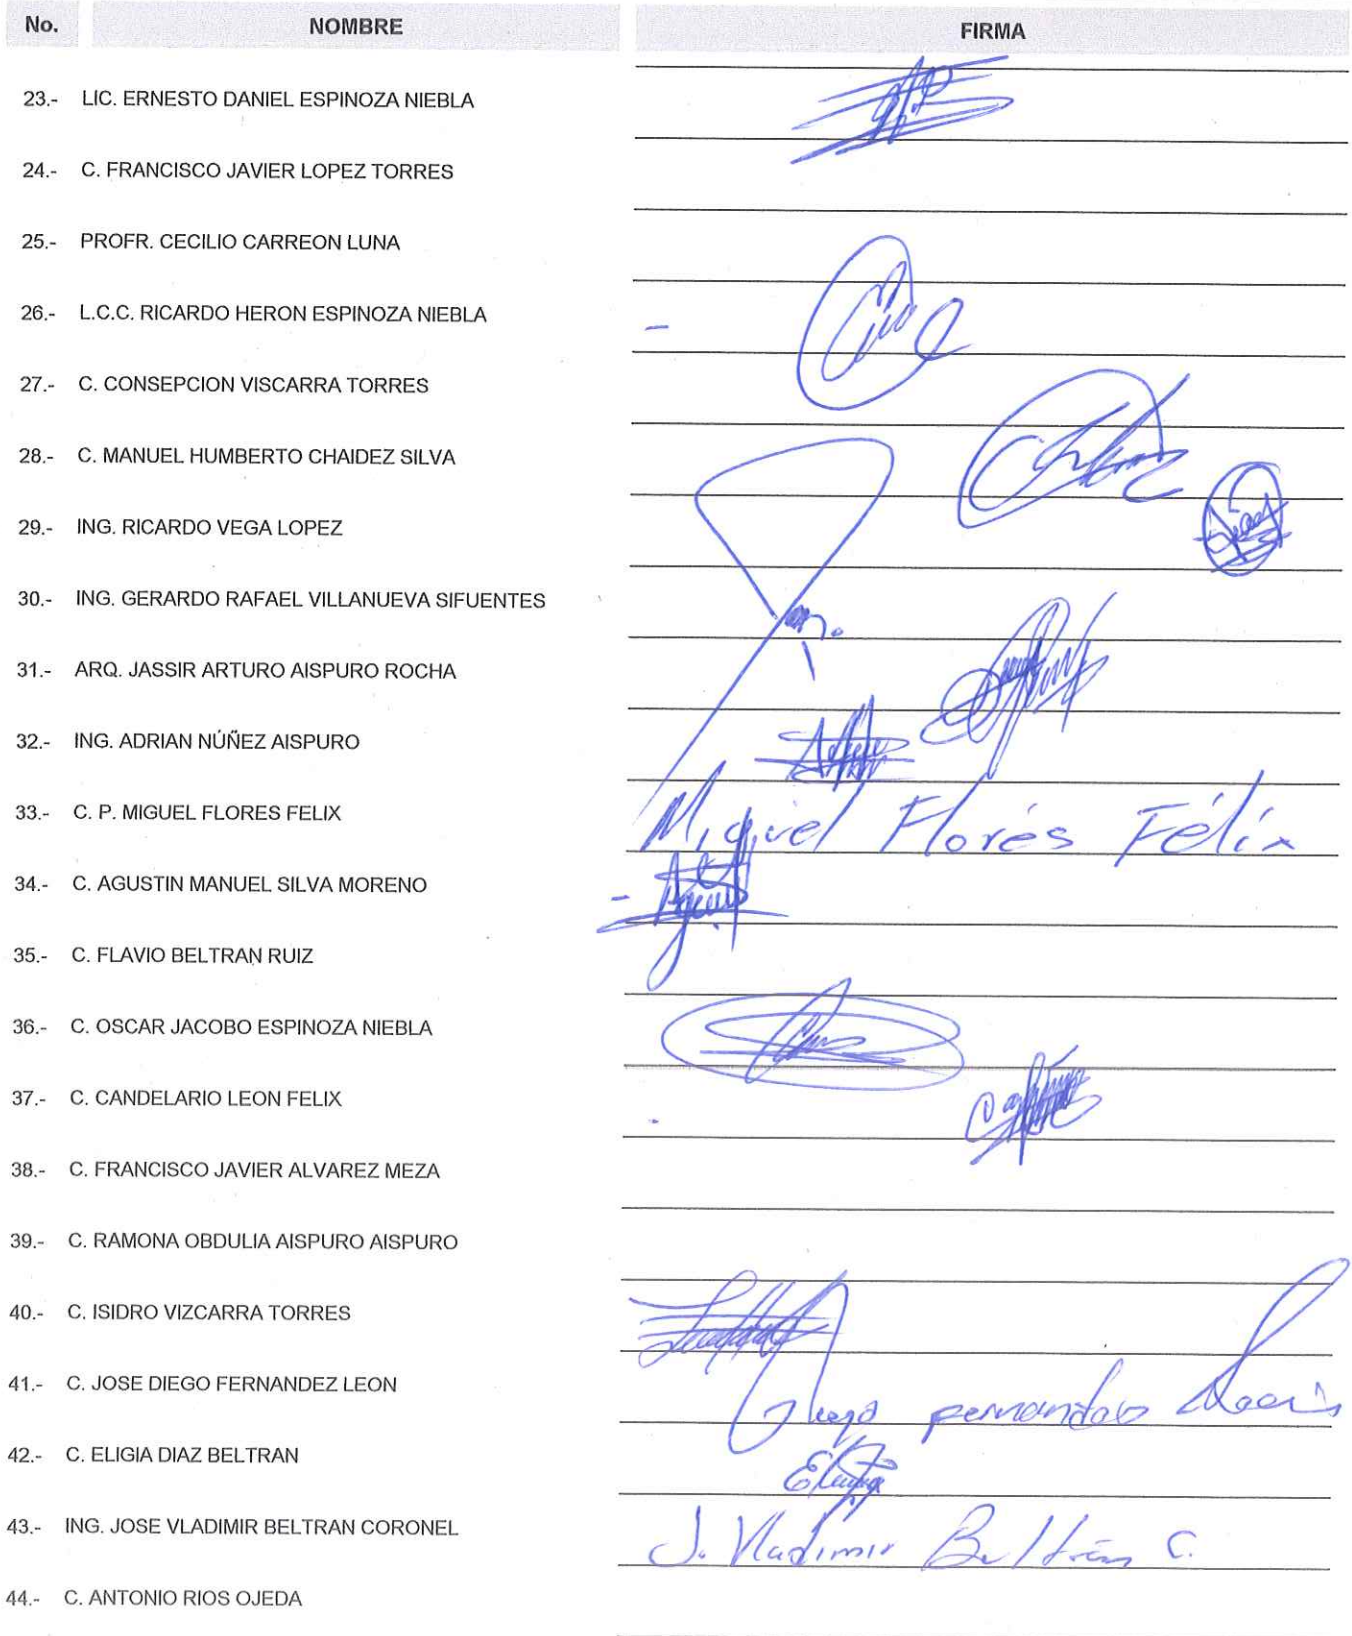 No. NOMBRE FIRMA
23.- LIC. ERNESTO DANIEL ESPINOZA NIEBLA
24.- C. FRANCISCO JAVIER LOPEZ TORRES
25.- PROFR. CECILIO CARREON LUNA
26.- L.C.C. RICARDO HERON ESPINOZA NIEBLA
27.- C. CONSEPCION VISCARRA TORRES
28.- C. MANUEL HUMBERTO CHAIDEZ SILVA
29.- ING. RICARDO VEGA LOPEZ
30.- ING. GERARDO RAFAEL VILLANUEVA SIFUENTES
31.- ARQ. JASSIR ARTURO AISPURO ROCHA
32.- ING. ADRIAN NÚÑEZ AISPURO
33.- C. P. MIGUEL FLORES FELIX Miguel Flores Félix
34.- C. AGUSTIN MANUEL SILVA MORENO
35.- C. FLAVIO BELTRAN RUIZ
36.- C. OSCAR JACOBO ESPINOZA NIEBLA
37.- C. CANDELARIO LEON FELIX
38.- C. FRANCISCO JAVIER ALVAREZ MEZA
39.- C. RAMONA OBDULIA AISPURO AISPURO
40.- C. ISIDRO VIZCARRA TORRES
41.- C. JOSE DIEGO FERNANDEZ LEON
42.- C. ELIGIA DIAZ BELTRAN
43.- ING. JOSE VLADIMIR BELTRAN CORONEL J. Vladimir Beltrán C.
44.- C. ANTONIO RIOS OJEDA